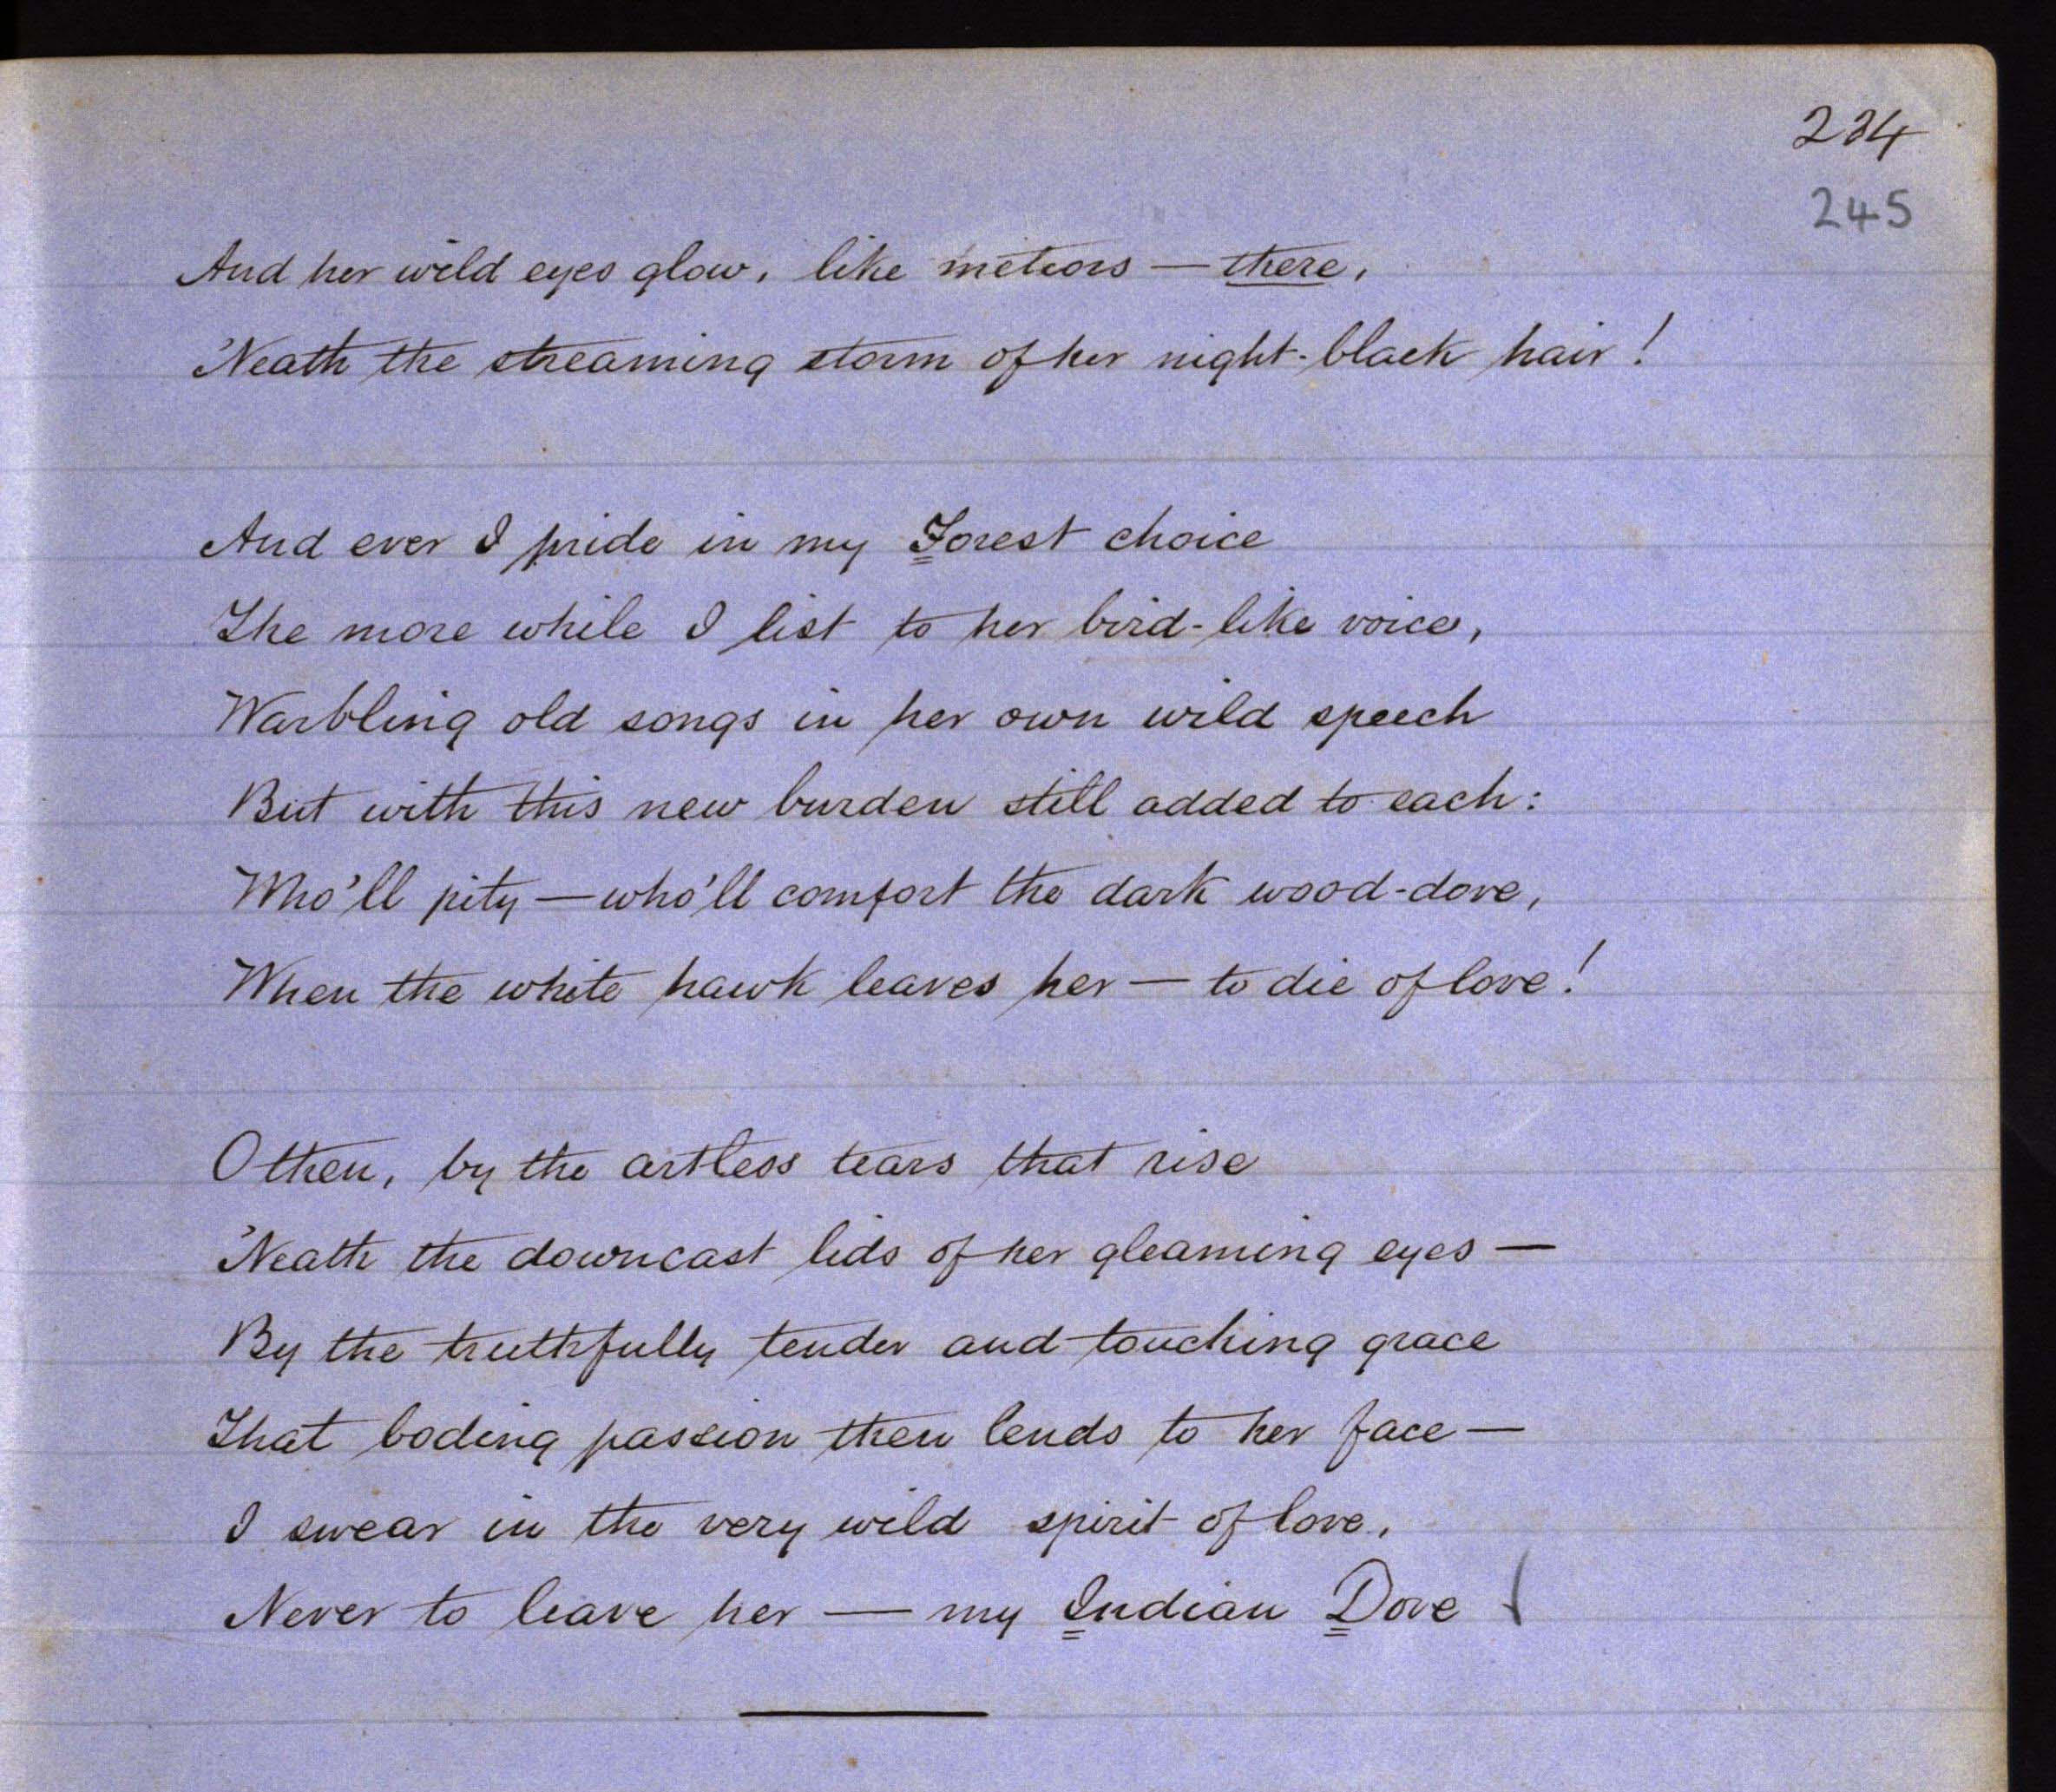 234
245
And her wild eyes glow, like meteors — there,
'Neath the streaming storm of her night-black hair!
And ever I pride in my Forest choice
The more while I list to her bird-like voice,
Warbling old songs in her own wild speech
But with this new burden still added to each:
Who'll pity — who'll comfort the dark wood-dove,
When the white hawk leaves her — to die of love!
O then, by the artless tears that rise
'Neath the downcast lids of her gleaming eyes —
By the truthfully tender and touching grace
That boding passion then lends to her face —
I swear in the very wild spirit of love,
Never to leave her — my Indian Dove!